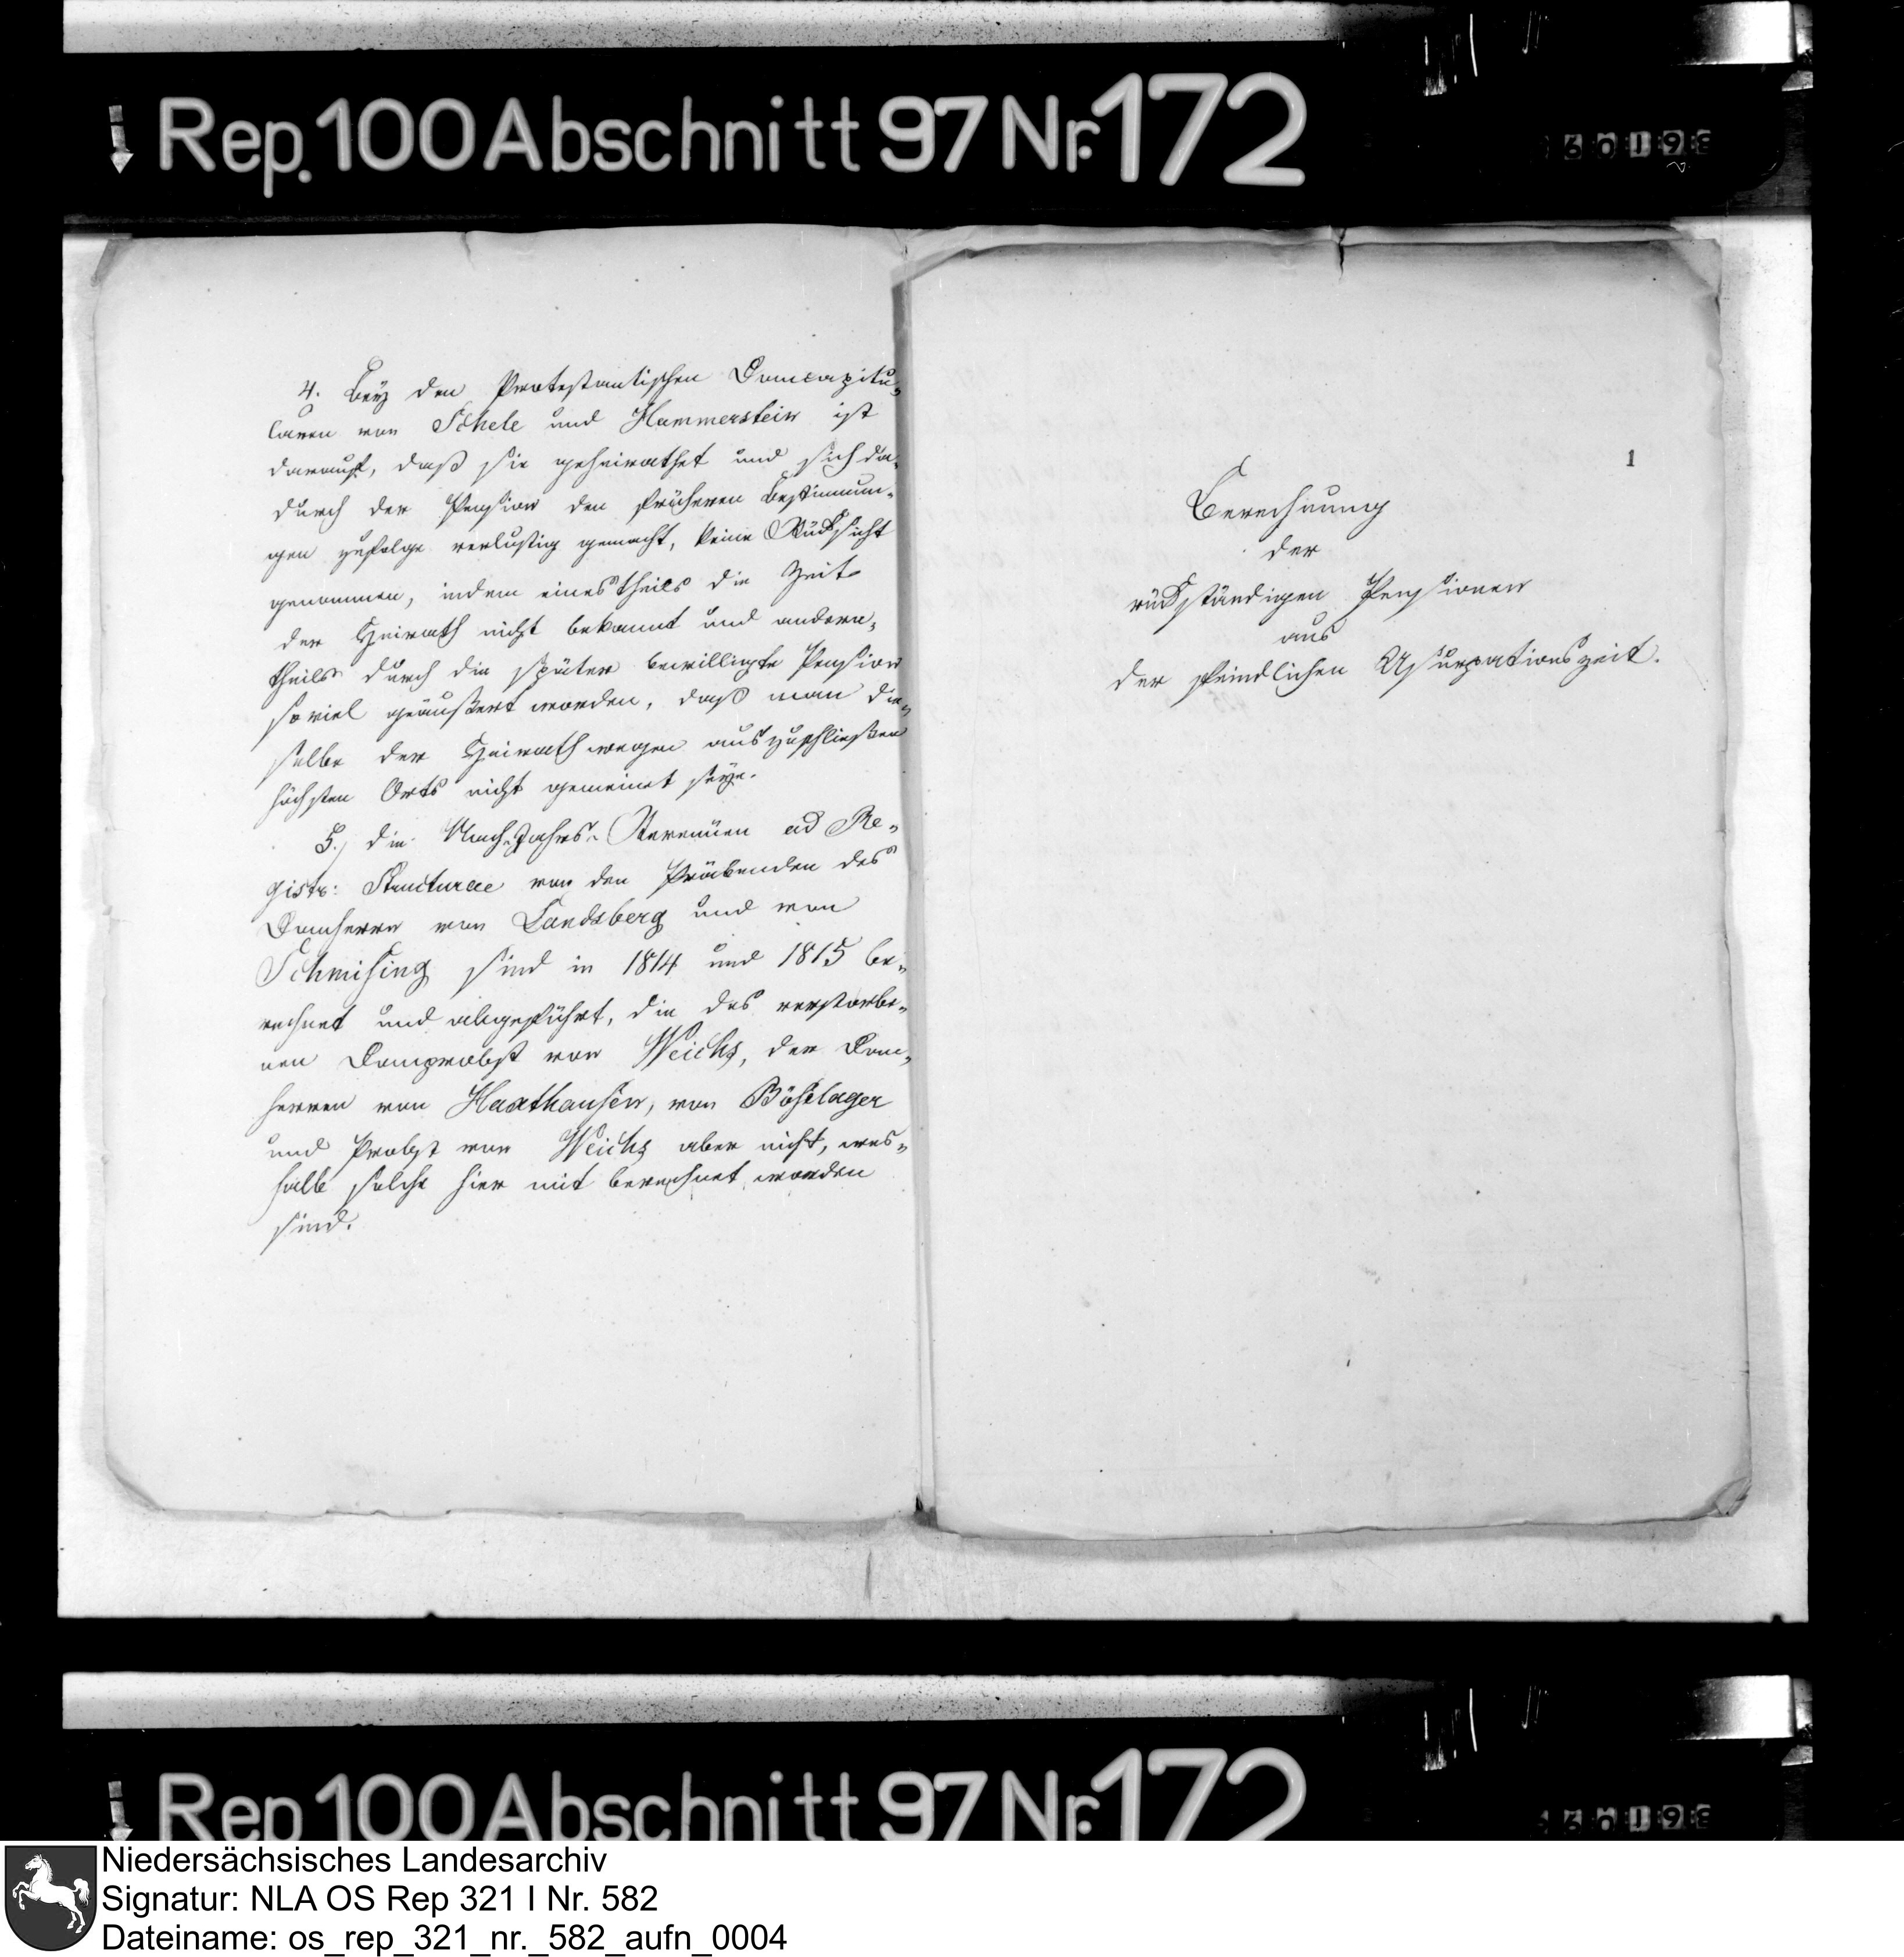 Rep. 100 Abschnitt 97 Nr. 172
4. Bey den Protestantischen Domcapitu-
laren von Schele und Hammerstein ist
darauf, daß sie geheirathet und sich da-
durch der Pension den früheren Bestimmun-
gen zufolge verlustig gemacht, keine Rücksicht
genommen, indem eines theils die Zeit
der Heirath nicht bekannt und andern-
theils durch die später bewilligte Pension
soviel geäußert worden, daß man die-
selbe der Heirath wegen auszuschließen
höchsten Orts nicht gemeinet seye.
5., die Nach-Jahrs-Revenüen ad Re-
gistr: Structurae von den Präbenden des
Domherrn von Landsberg und von
Schmising sind in 1814 und 1815 be-
rechnet und abgeführt, die des verstorbe-
nen Domprobst von Weichs, der Dom-
herren von Haxthausen, von Böselager
und Probst von Weichs aber nicht, wes-
halb solche hier mit berechnet worden
sind.
1
Berechnung
der
rückständigen Pensionen
aus
der feindlichen Usurpationszeit.
Rep 100 Abschnitt 97 Nr. 172
Niedersächsisches Landesarchiv
Signatur: NLA OS Rep 321 I Nr. 582
Dateiname: os_rep_321_nr._582_aufn_0004